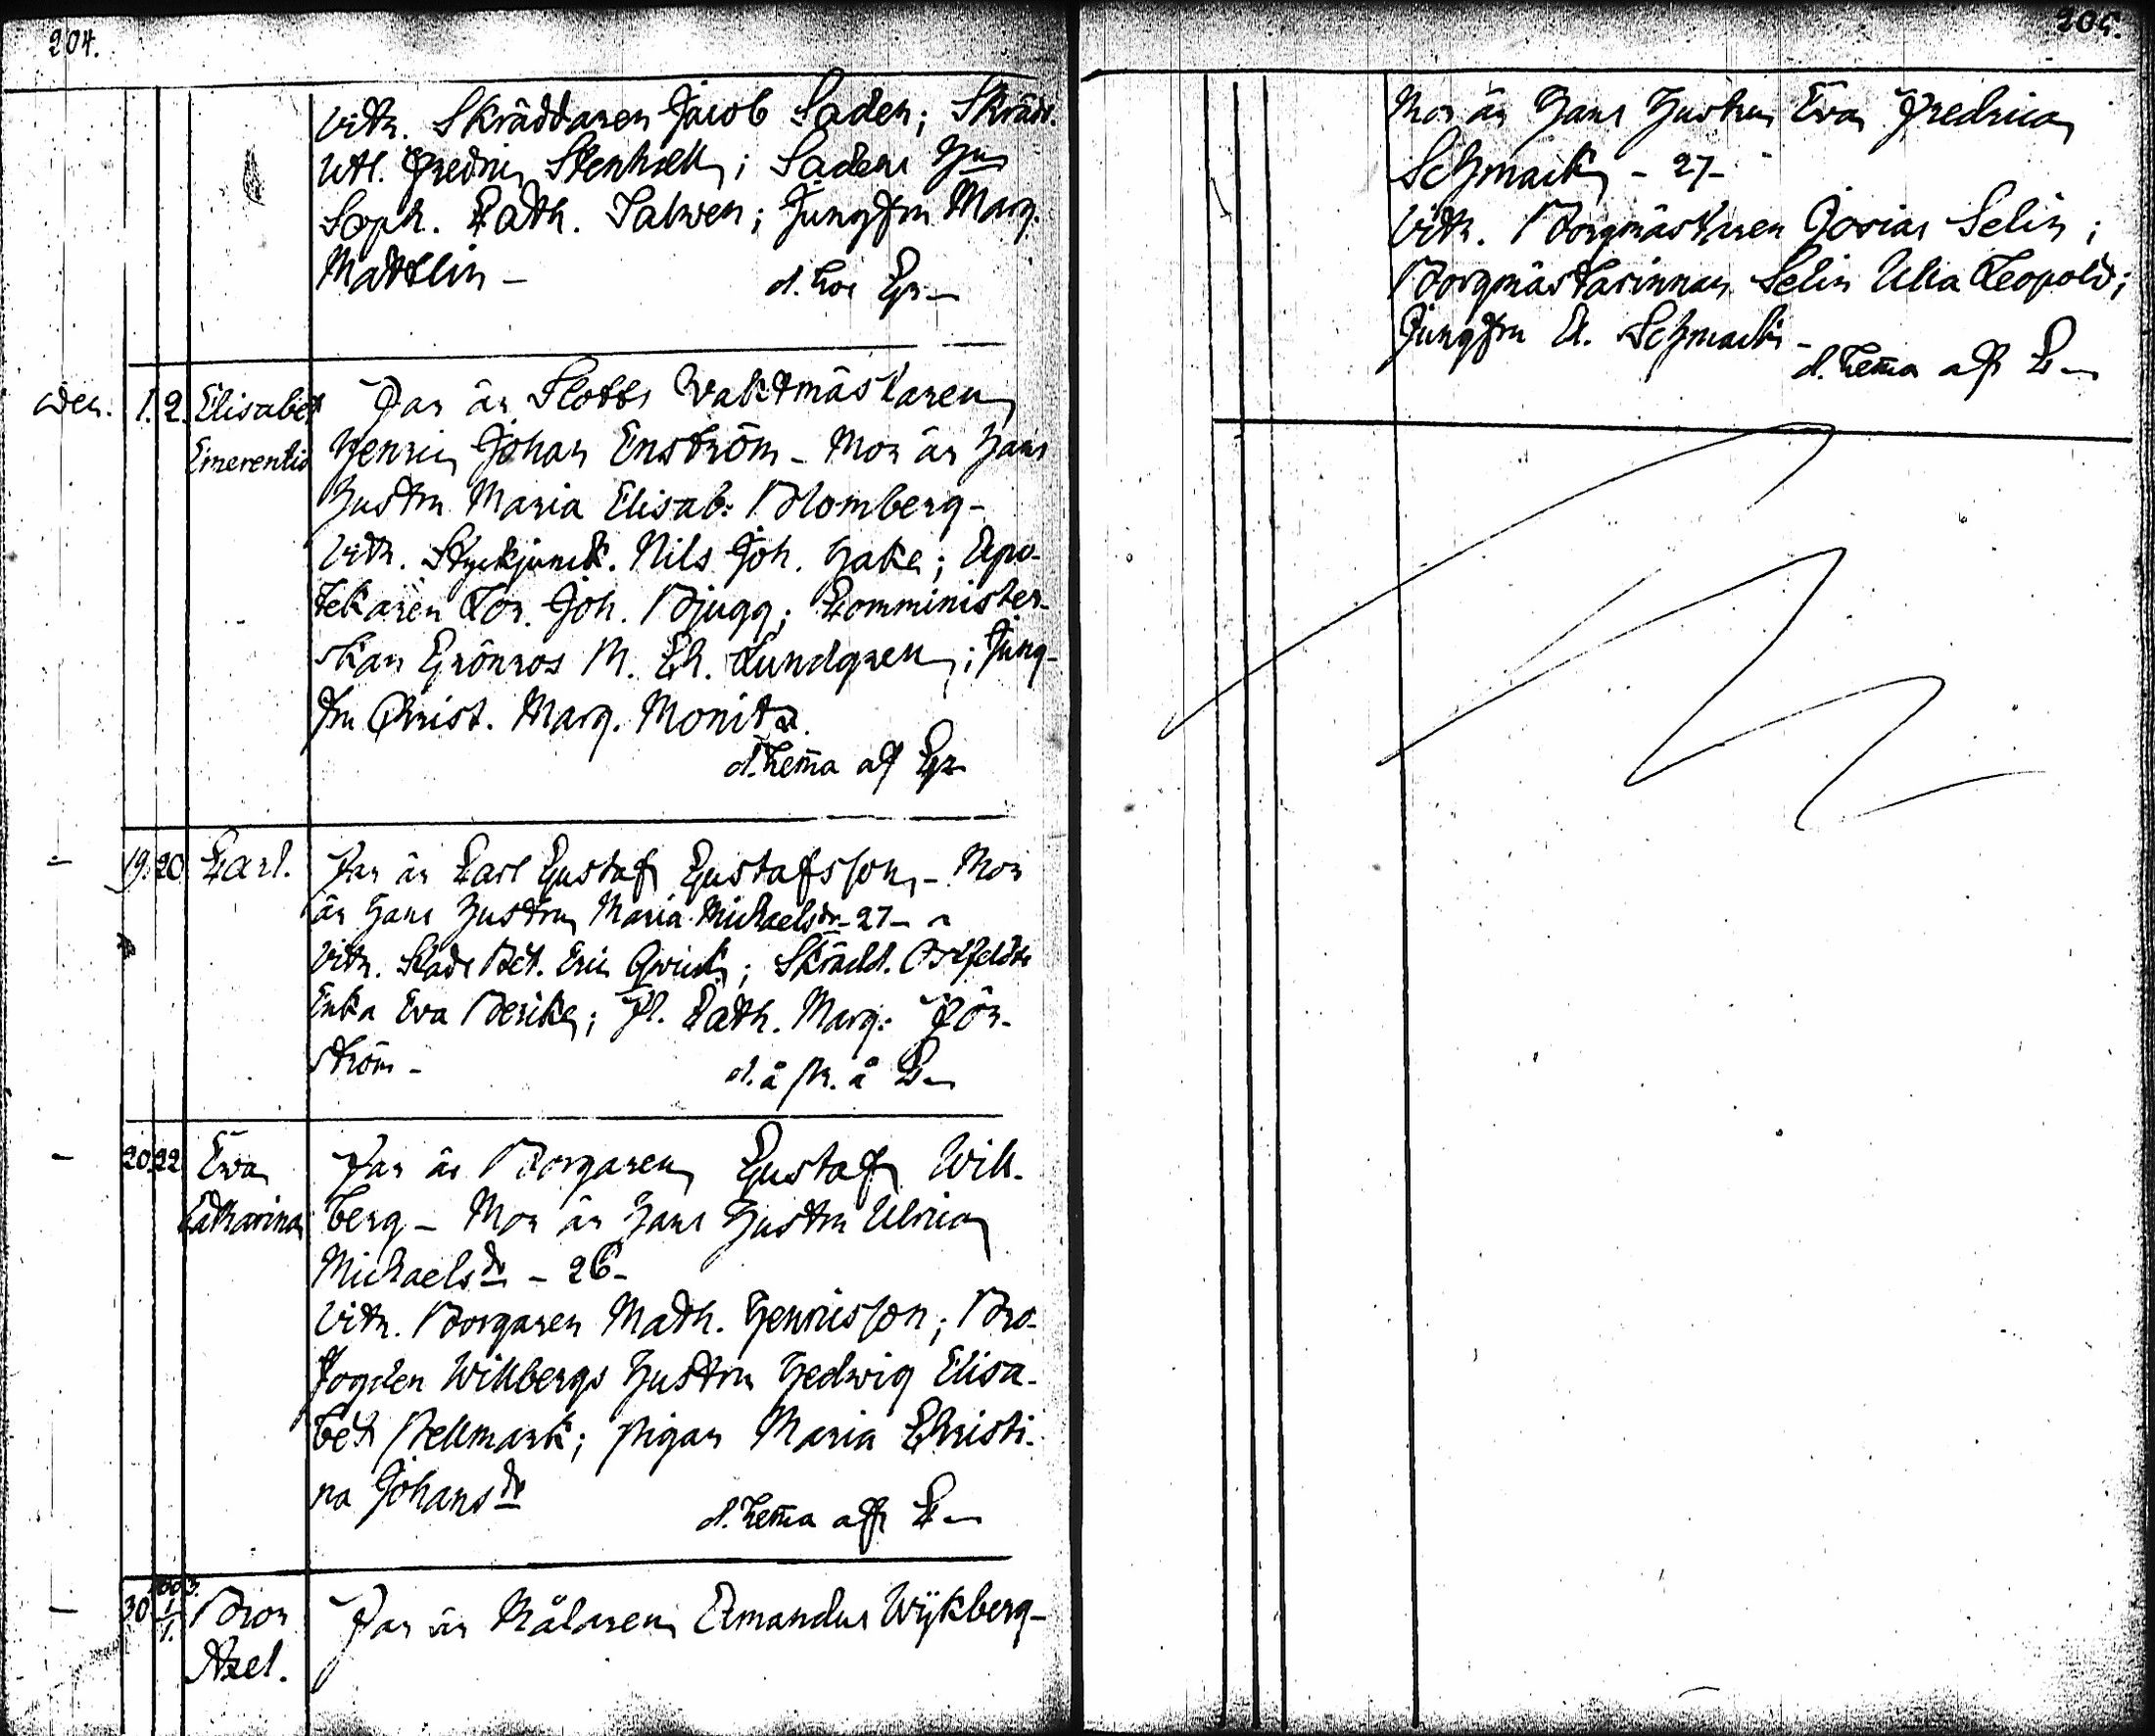 204.
Vitn. Skräddaren Jacob Saden; Skrädd.
Fredric Stenhäll; Sadens Hu
Soph. Cath. Salwen; Jungfru Marg.
Mattlin -
Decr. 1. 2. Elisabet Far är Slotts Vaktmästaren
Emerentia Henric Johan Enström - Mor är Hans
Hustru Maria Elisab: Blomberg -
Vitn. Styckjunck. Nils Joh. Hake; Apo-
tekaren Joh. Bjugg; Comminister-
skan Grönros M. Ch. Lundgren; Jung-
fru Christ. Marg. Monitz.
d. hema af Gr-
- 19. 20 Carl. Far är Carl Gustaf Gustafsson, - Mor
är Hans Hustru Maria Michaelsdr - 27 -
Vitn. Eric Qvick; Skrädd.
Enka Eva Berike; Fl. Cath. Marg: För-
ström -
- 20 22 Eva Far är Borgaren Gustaf Will-
Catharina berg - Mor är Hans Hustru Ulrica
Michaelsdr - 26 -
Vitn. Borgaren Math. Henricsson; Bro-
fogden Willbergs Hustru Hedwig Elisa-
bet Bellmark; Pigan Maria Christi-
na Johansdr
d. hema aff C-
- 30 1803. 1/1. Bror Far är Målaren Amandus Wÿkberg -
Axel.
205.
Mor är Hans Hustru Eva Fredrica
Schmack - 27 -
Vitn. Borgmästaren Josias Selin;
Borgmästarinnan Selin Ulla Leopold;
Jungfru A. Schmack -
d. hema af C-